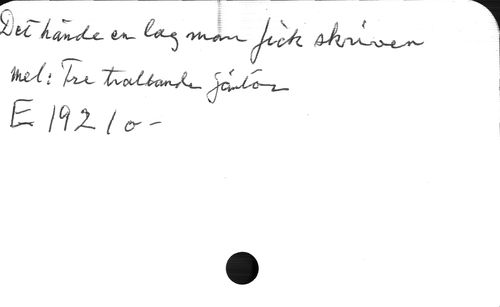 Det hände en lag man fick skriven
mel: Tre trallande jäntor
E 192 / o -